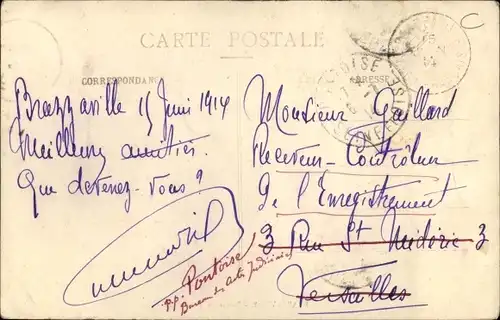 CARTE POSTALE
CORRESPONDANCE
ADRESSE
Brazzaville 15 Juin 1914
Meilleures amitiés.
Que devenez-vous ?
Monsieur Gaillard
Receveur-Contrôleur
De l'Enregistrement
3 Rue St Médéric 3
Versailles
p.p. Pontoise
Bureau des Actes Judiciaires